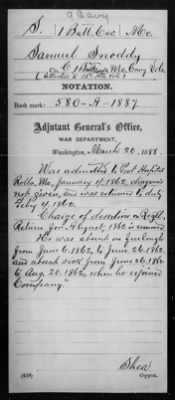 S. | 1 Batt. Cav. | Mo.
Samuel Snoddy
NOTATION.
Book mark: 580-A-1887
Adjutant General's Office,
WAR DEPARTMENT,
Washington, March 20, 1888.
Was admitted to Post Hospital
Rolla, Mo., January 4, 1862, diagnosis
not given, and was returned to duty
Feby 4, 1862.
Charge of desertion on Regtl.
Return for August, 1862 is removed
He was absent on furlough
from June 6, 1862, to June 26, 1862
and absent sick from June 26, 1862
to Aug. 20, 1862, when he rejoined
Company
Shea
Copyist.